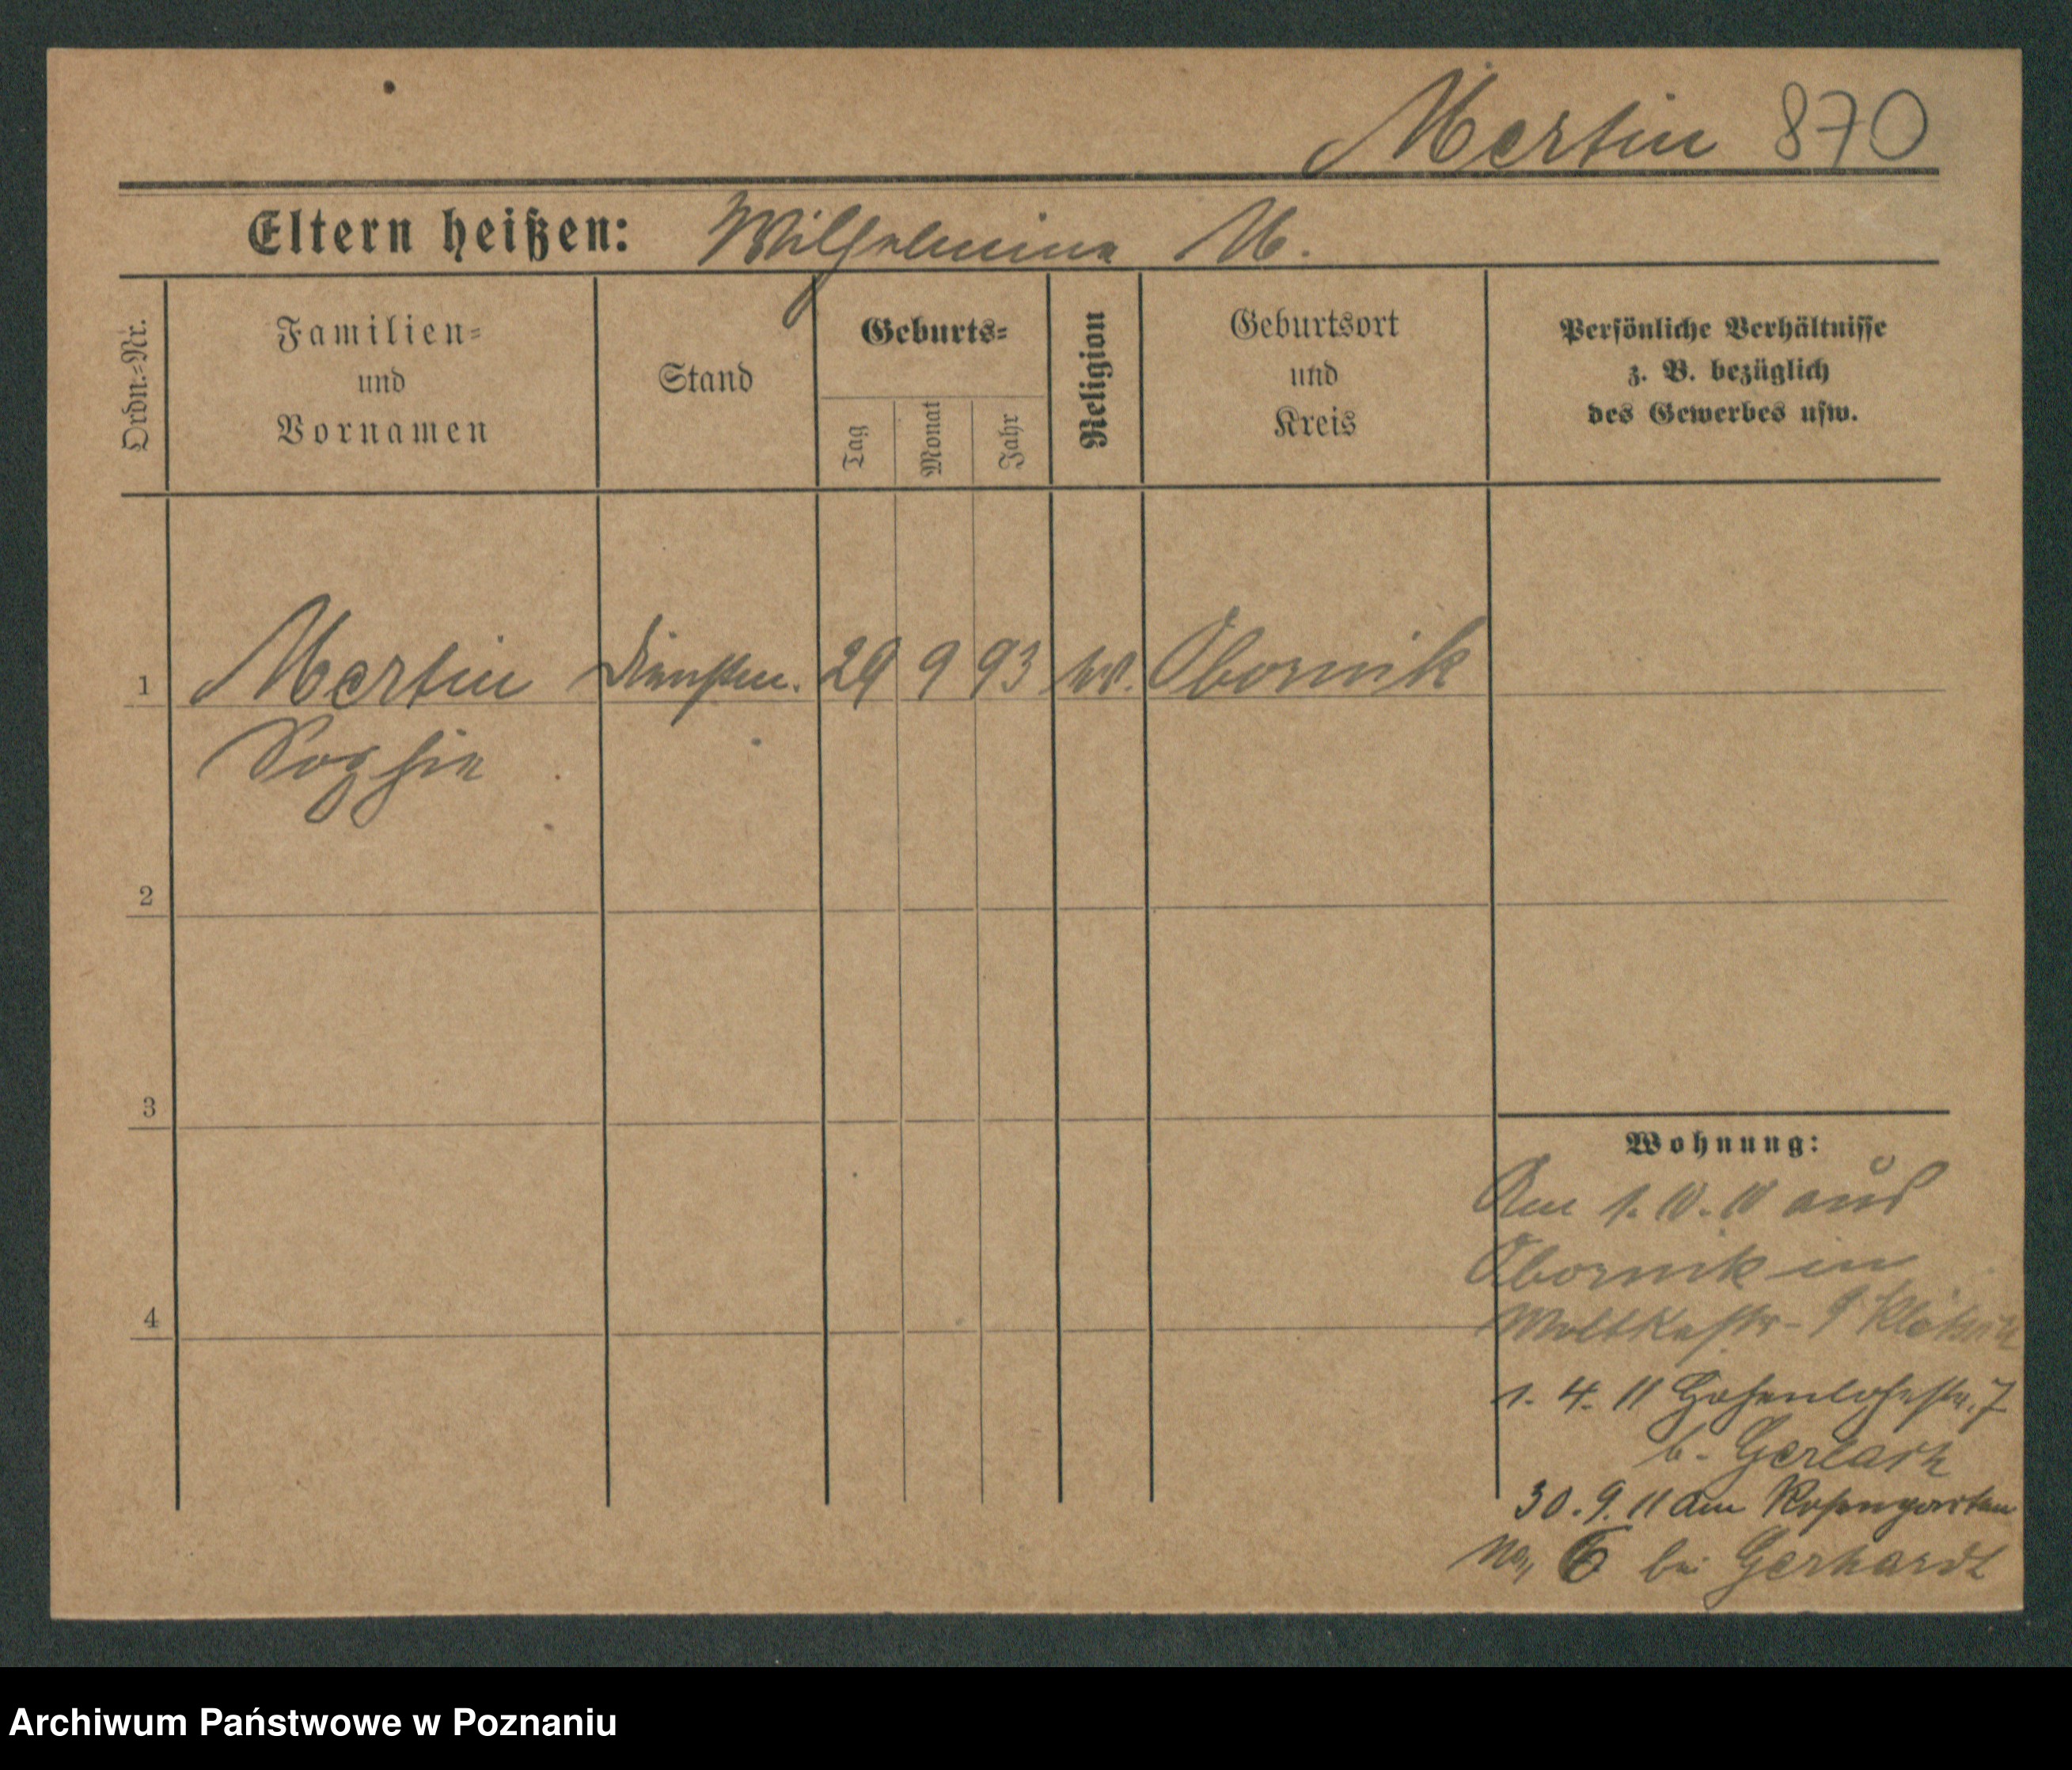 Mertin 870
Eltern heißen: Wilhelmine M.
Ordn.=Nr.
Familien=
und
Vornamen
Stand
Geburts=
Tag
Monat
Jahr
Religion
Geburtsort
und
Kreis
Persönliche Verhältnisse
z. B. bezüglich
des Gewerbes usw.
1 Mertin Dienstm. 29 9 93 ev. Obornik
Sophie
2
3
4
Wohnung:
Am 1. 10. 10 aus
Obornik in
Moltkestr. 9
1. 4. 11 Hohenlohestr. 7
b. Gerlach
30. 9. 11 Am Rosengarten
No, 6 bei Gerhardt
Archiwum Państwowe w Poznaniu